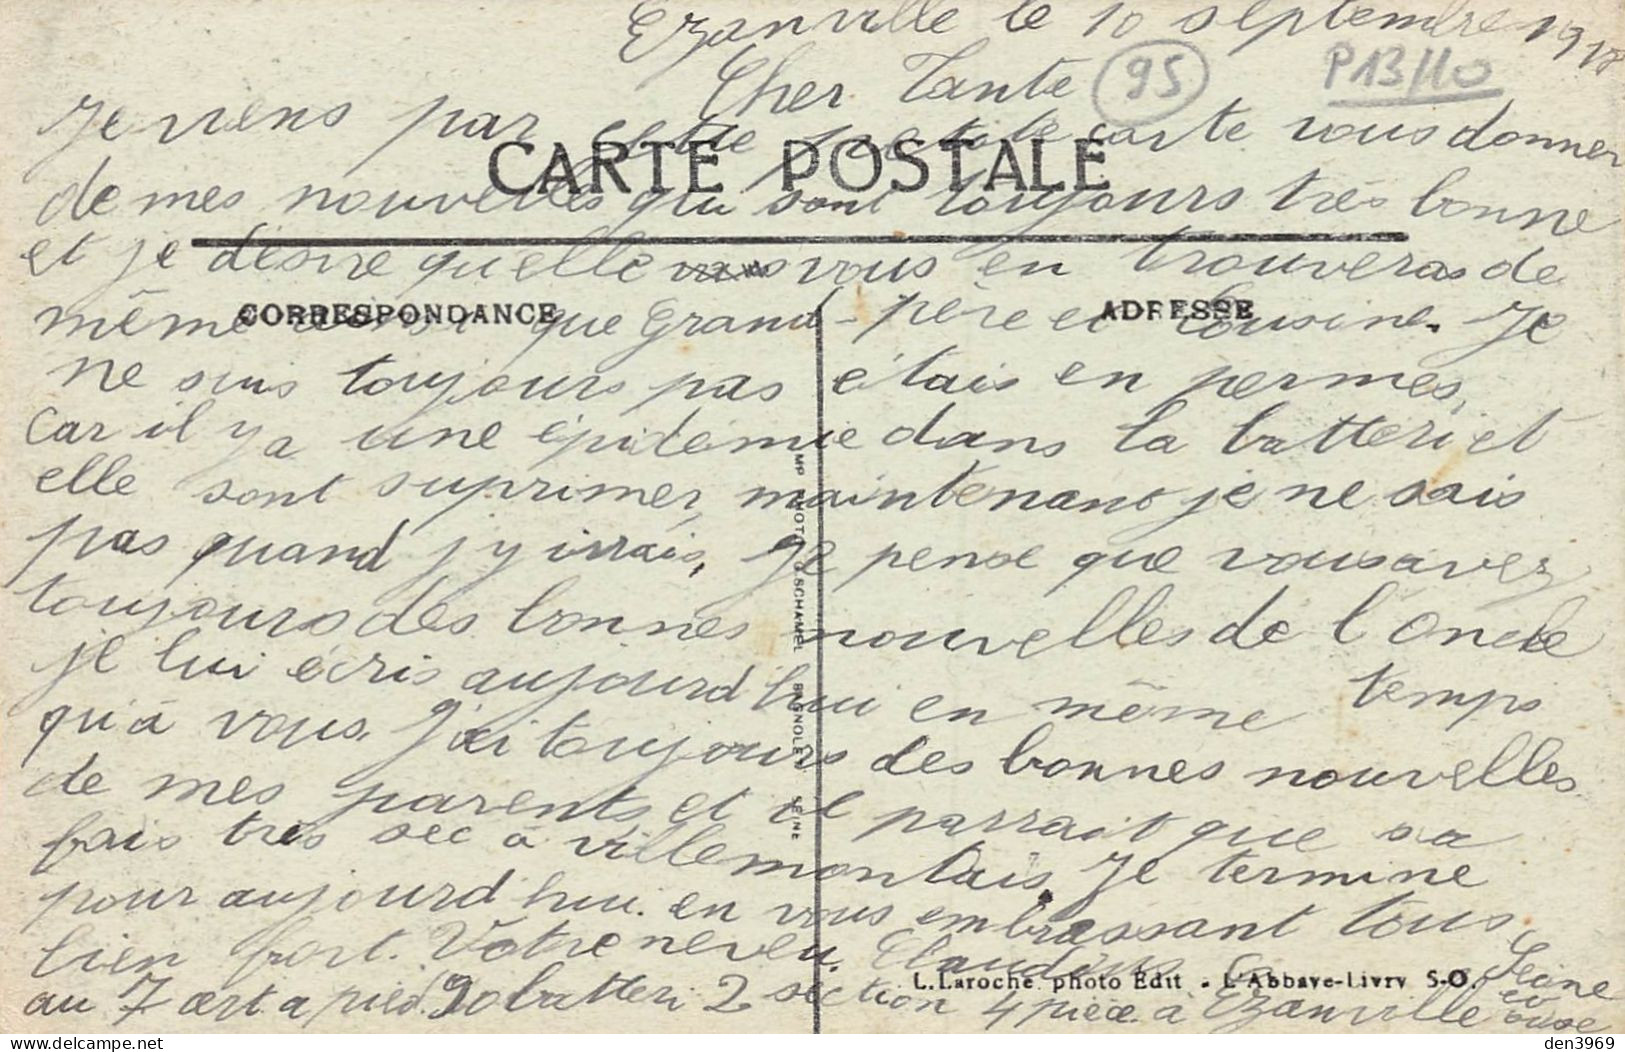 Ezanville le 10 septembre 1918
Cher Tante
95
P13/10
Je viens par cette carte vous donner
CARTE POSTALE
de mes nouvelles qui sont toujours très bonne
et je désire qu'elle vous en trouveras de
CORRESPONDANCE
ADRESSE
même que Grand-père et Cousine. Je
ne suis toujours pas étais en permes,
car il y a une épidémie dans la batteri et
elle sont suprimer, maintenant je ne sais
pas quand j'y irrais, Je pense que vous avez
toujours des bonnes nouvelles de l'Oncle
je lui écris aujourd'hui en même temps
qu'à vous. J'ai toujours des bonnes nouvelles
de mes parents et il parrait que sa
fais très sec à villemontais. Je termine
pour aujourd'hui. en vous embrassant tous
bien fort. Votre neveu. Claudius
au 7 art a pied 90 batteri 2 section 4 pièce à Ezanville Seine et Oise
IMP PHOTO SCHAMEL BAGNOLET SEINE
L. Laroche photo Edit - L'Abbaye-Livry S-O.
den3969